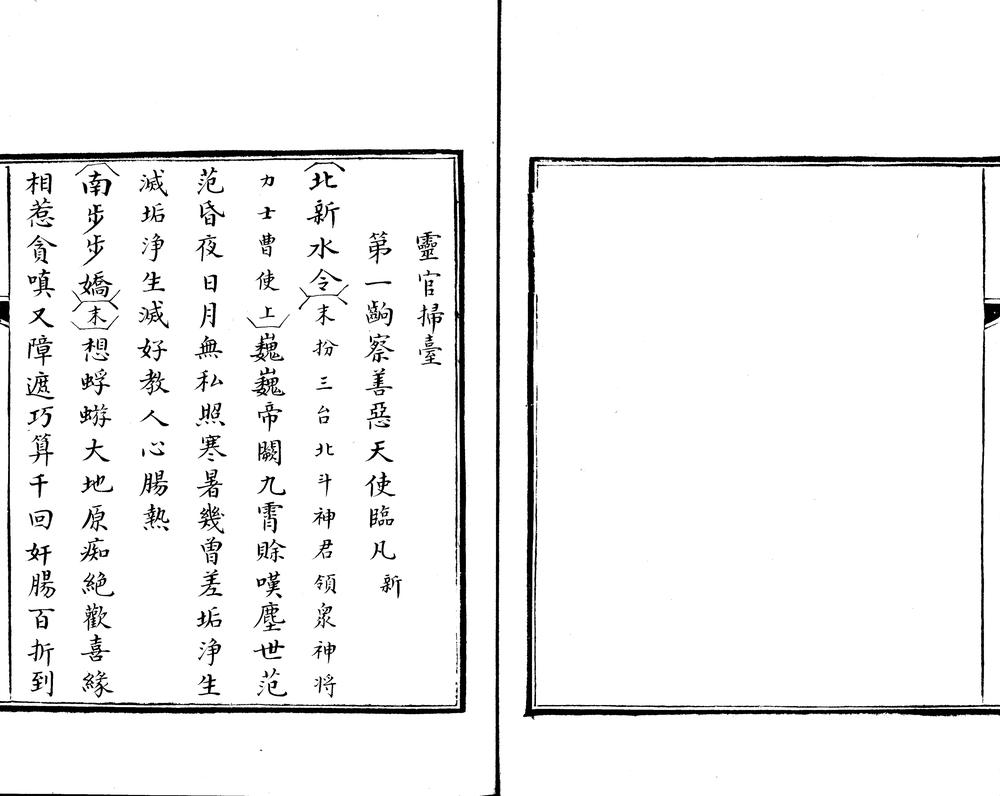 靈官掃臺
第一齣察善惡天使臨凡 新
北新水令末扮三台北斗神君領衆神將
力士曹使上巍巍帝闕九霄賒嘆塵世范
范昏夜日月無私照寒暑幾曾差垢淨生
滅垢淨生滅好教人心腸熱
南步步嬌末想蜉蝣大地原痴絕歡喜緣
相惹貪嗔又障遮巧算千回奸腸百折到